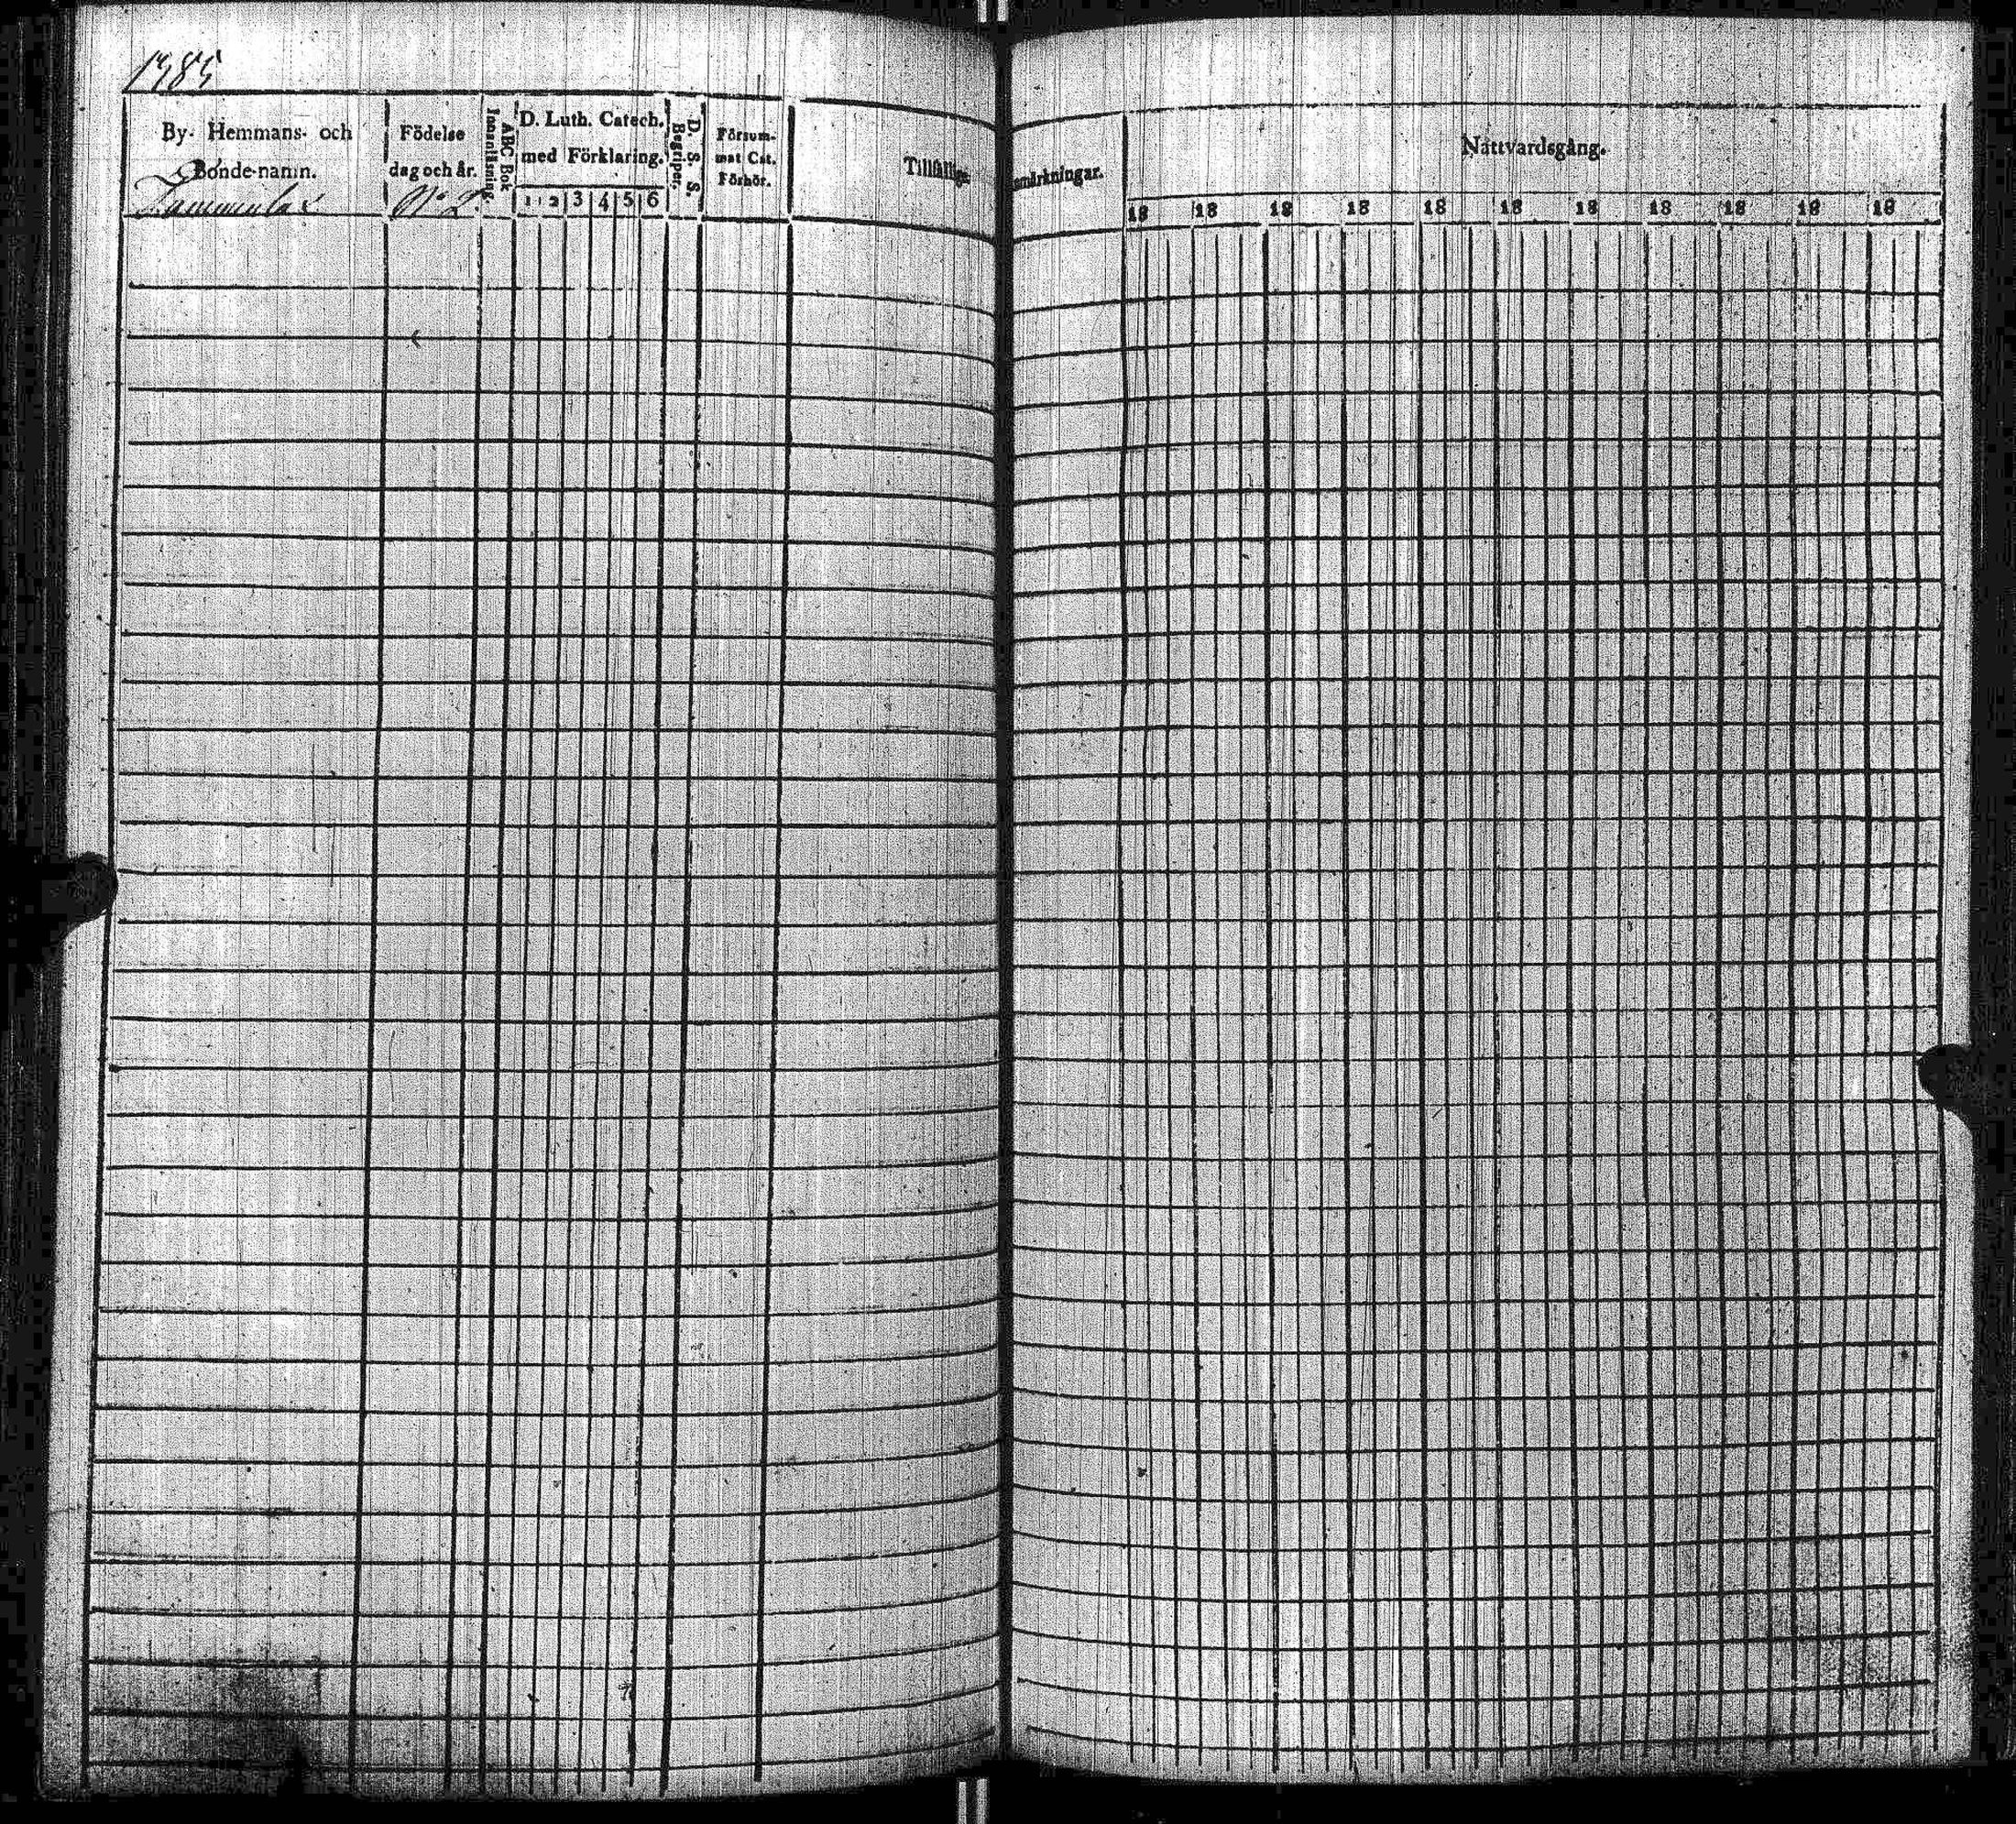 1385
By- Hemmans- och
Bonde-namn.
Födelse
dag och år.
No 2
ABC Bok
Innanläsning.
D. Luth. Catech.
med Förklaring.
1 2 3 4 5 6
D. S. S.
Begriper.
Försum-
mat Cat.
Förhör.
Tillfällige
anmärkningar.
Nattvardsgång.
18 18 18 18 18 18 18 18 18 18 18